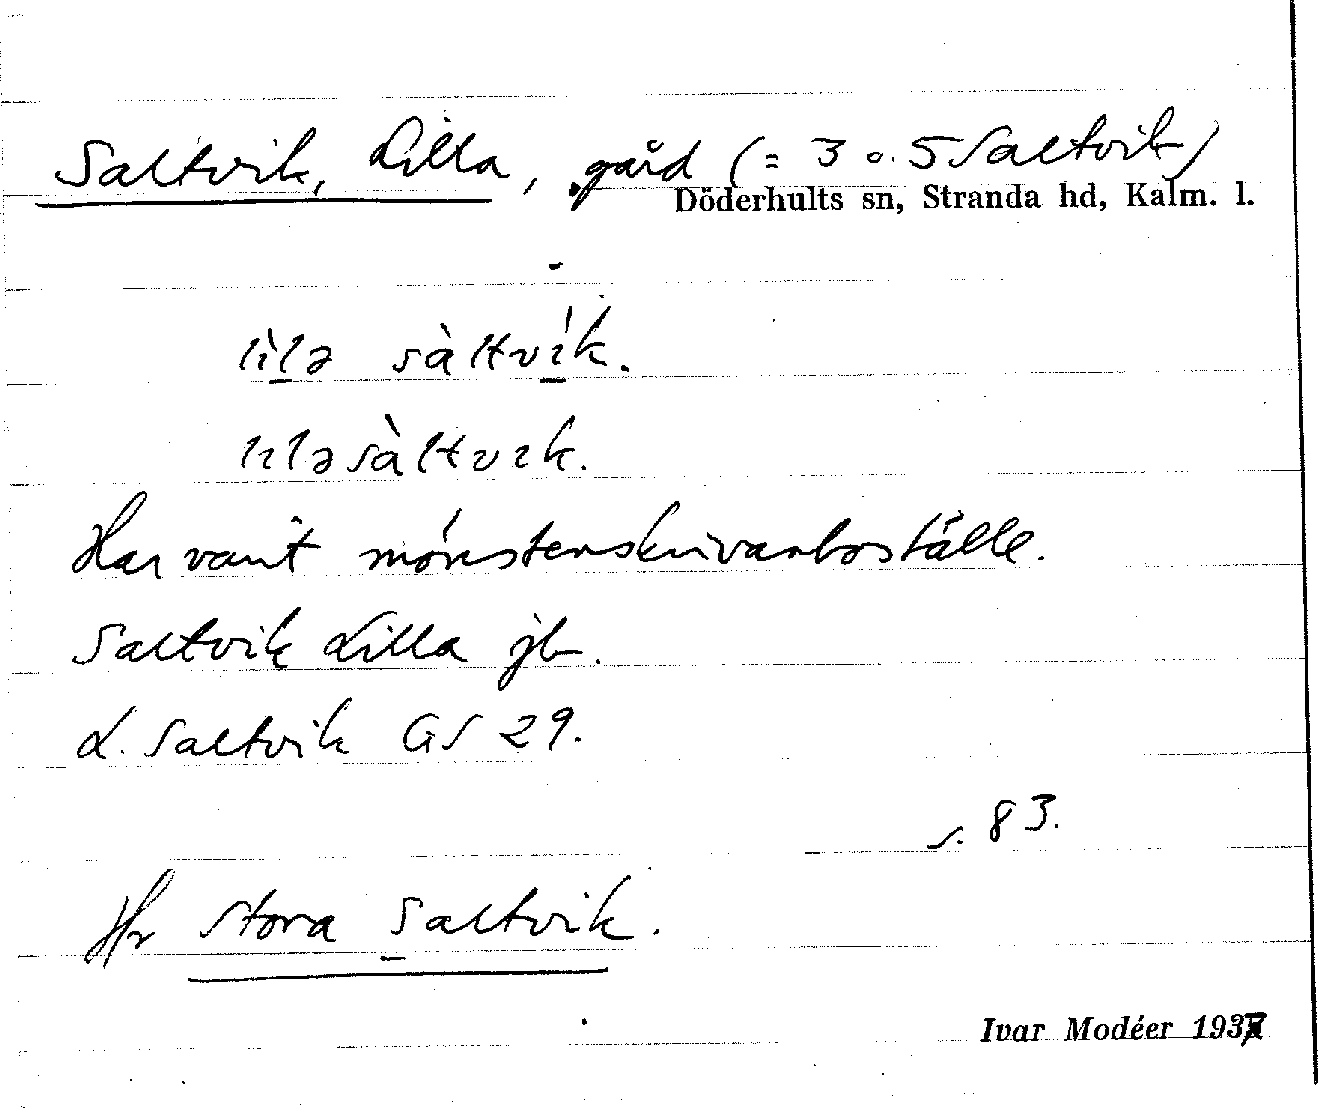 Saltvik, Lilla, gård (= 3 o. 5 Saltvik)
Döderhults sn, Stranda hd, Kalm. l.
lìlə sàltvík.
lıləsàltvık.
Har varit mönsterskrivarboställe.
Saltvik Lilla jb.
L. Saltvik GS 29.
s. 83.
Jfr Stora Saltvik.
Ivar Modéer 1937